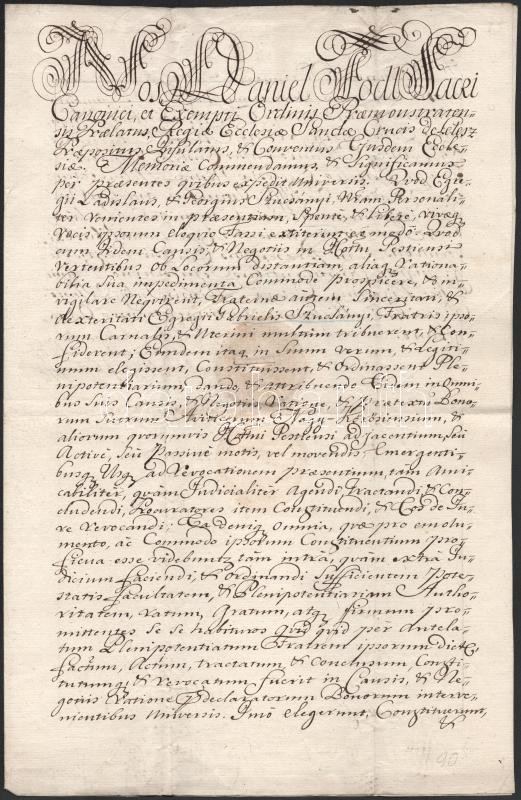 Nos Daniel Fodll Sacri
Canonici, et Exempti Ordinis Præmonstraten=
sis Prælatus, Regiæ Ecclesiæ Sanctæ Crucis de Lelesz
Præpositus Infulatus, & Conventus Ejusdem Eccle=
siæ. Memoriæ Commendamus, & Significamus
per præsentes quibus expedit Universis. Quod Egre=
gii Ladislaus, & Georgius Szucsányi, Nram Personali=
ter Venientes in præsentiam, Sponte, & libere, vivæq
Vocis ipsorum eloquio Fassi extiterunt eo modo. Quod
cum Iidem Causis, & Negotiis in Cottu Pestiensi
Vertentibus Ob Locorum distantiam, aliaq rationa=
bilia Sua impedimenta Commode prospicere, & in=
vigilare Nequirent, Fraternæ autem Sinceritati, &
dexteritati Egregii Gabrielis Szucsányi, Fratris ipso=
rum Carnalis, & Uterini multum tribuerent, & Con=
fiderent; Eundem itaq, in Suum Verum, & Legiti=
mum elegissent, Constituissent, & Ordinassent Ple=
nipotentiarium, dando, & attribuendo Eidem in Omni=
bus Suis Causis, & Negotiis Ratione, & Prætextu Bono=
rum Suorum Avitorum, &
aliorum quorumvis Cottui Pestiensi adjacentium, seu
Active, seu Passive motis, vel movendis, Emergenti=
busq, Usq, ad Revocationem præsentium, tam Ami=
cabiliter, quam Judicialiter Agendi, Tractandi, & Con=
cludendi, Procuratores item Constituendi, & Eos de Ju=
re Revocandi; Ea deniq, Omnia, quæ pro emolu=
mento, ac Commodo ipsorum Constituentium pro=
ficua esse videbuntur, tam intra, quam extra Ju=
dicium Faciendi, & Ordinandi Sufficientem Pote=
statis Facultatem, & Plenipotentiariam Autho=
ritatem, Ratum, Gratum, atq, firmum pro=
mittentes Se Se habituros quid quid per Antela=
tum Plenipotentiatum Fratrem ipsorum dict
Factum, Actum, tractatum, & Conclusum, Consti=
tutumq, & revocatum fuerit in Causis, & Ne=
gotiis Ratione Prædeclaratorum Bonorum interve=
nientibus Universis. Imo elegerunt, Constituerunt,
&
90